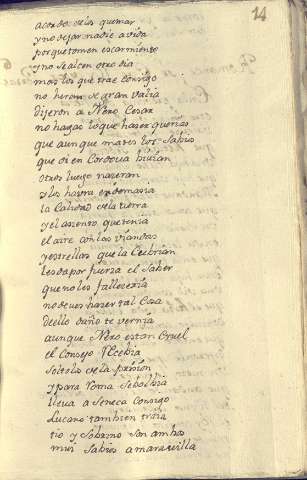 14
acordo dela quemar
y no dejar nadie avida
porque tomen escarmiento
y no sealcen otro dia
mas los que trae consigo
no heron de gran valia
dijeron a Nero Cesar
no hagas lo que hazer querias
que aunque mates los Sabios
que oi en Cordova biuian
otros luego naseran
y los havra en demasia
la Calidad de la tierra
y el asiento que tenia
el aire con las viandas
y estrellas que la Cubrian
les da por fuerza el Saber
que no les fallereria
no deues hazer tal Cosa
de ello daño te vernia
aunque Nero es tan Cruel
el Consejo Recebia
soltolos de la prision
y para Roma se bolbia
lleua a Seneca Consigo
Lucano tambien traia
tio y Sobrino son ambos
mui Sabios a marauilla